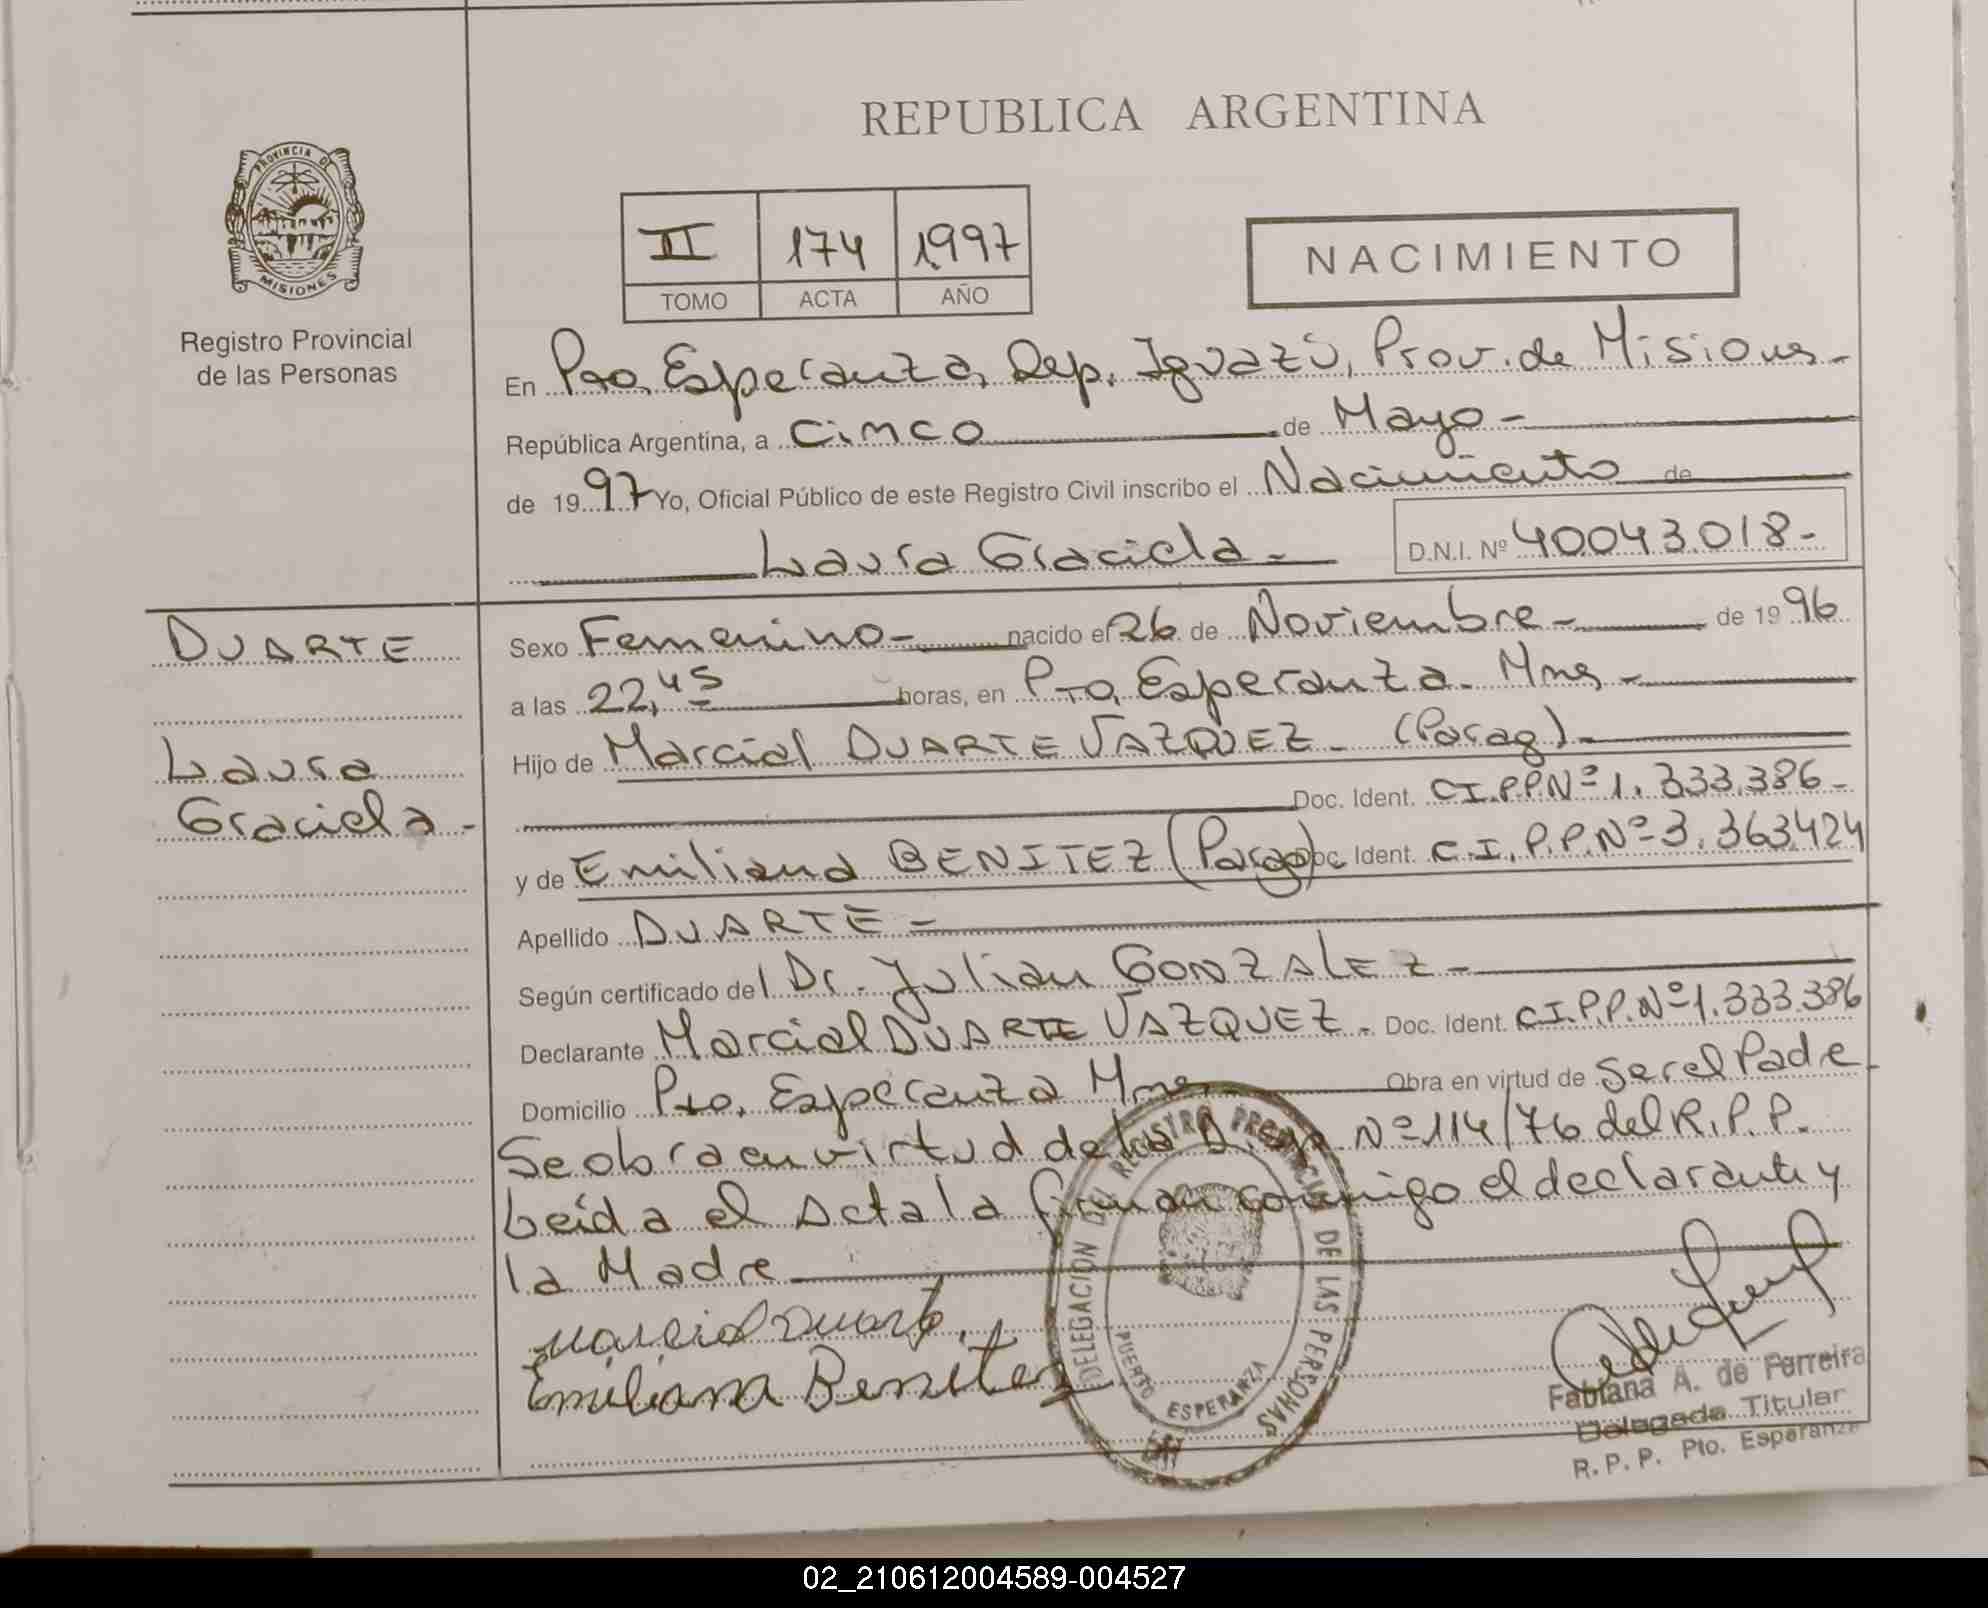 REPUBLICA ARGENTINA
PROVINCIA DE
MISIONES
Registro Provincial
de las Personas
II 174 1997
TOMO ACTA AÑO
NACIMIENTO
En Pto. Esperanza, Dep. Iguazú, Prov. de Misiones-
República Argentina, a cinco de Mayo-
de 1997 Yo, Oficial Público de este Registro Civil inscribo el Nacimiento de
Laura Graciela- D.N.I. Nº 40.043.018-
DUARTE
Laura
Graciela-
Sexo Femenino- nacido el 26 de Noviembre- de 1996
a las 22,45 horas, en Pto. Esperanza. Mnes-
Hijo de Marcial DUARTE VAZQUEZ- (Parag)-
Doc. Ident. C.I.P.P.Nº 1.333.386-
y de Emiliana BENITEZ (Parag) Doc. Ident. C.I.P.P.Nº 3.363.424
Apellido DUARTE-
Según certificado del Dr. Julian GONZALEZ-
Declarante Marcial DUARTE VAZQUEZ- Doc. Ident. C.I.P.P.Nº 1.333.386
Domicilio Pto. Esperanza Mnes Obra en virtud de Ser el Padre
Se obra en virtud de la Nº 114/76 del R.P.P.
Leída el Acta la firman conmigo el declarante y
la Madre
Marcial Duarte
Emiliana Benitez
DELEGACION DEL REGISTRO PROVINCIAL DE LAS PERSONAS
PUERTO ESPERANZA
Fabiana A. de Ferreira
Delegada Titular
R.P.P. Pto. Esperanza
02_210612004589-004527